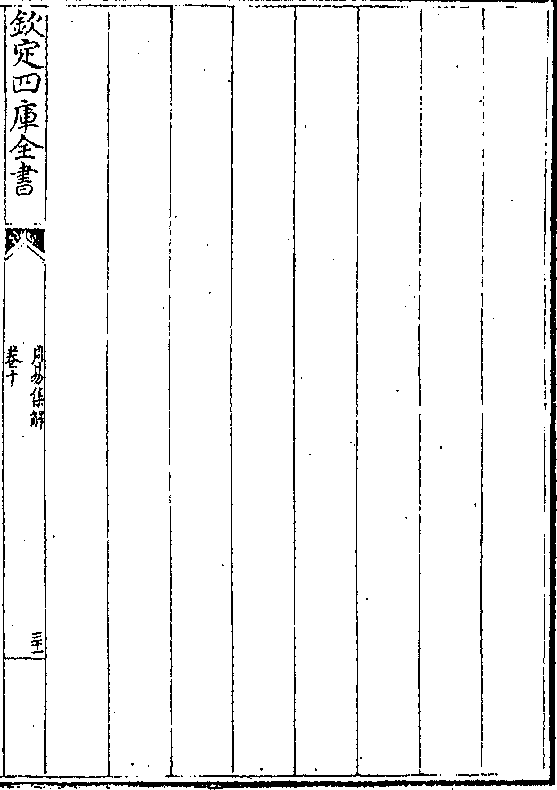 欽定四庫全書
周易集解
卷十
三十一